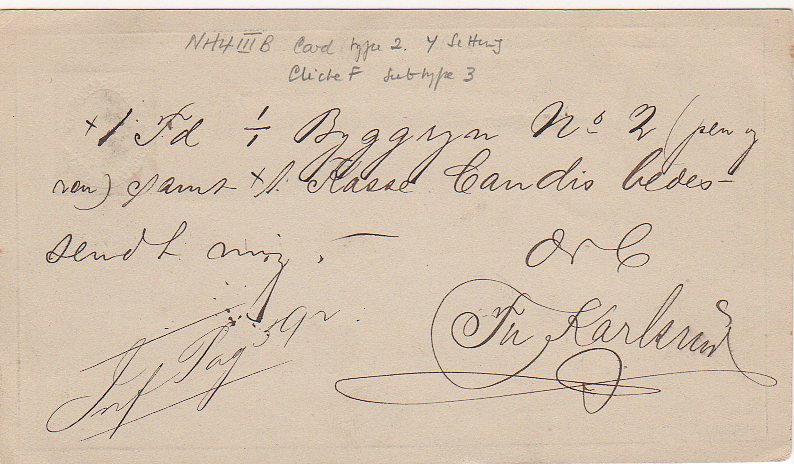 NH4IIIB Card type 2. Y Setting
Cliche F Subtype 3
+1 Td 1/1 Byggryn No 2 (pen og
ren) samt +1. Kasse Candis bedes
sendt mig. —
Karlsrud
Inf Pag